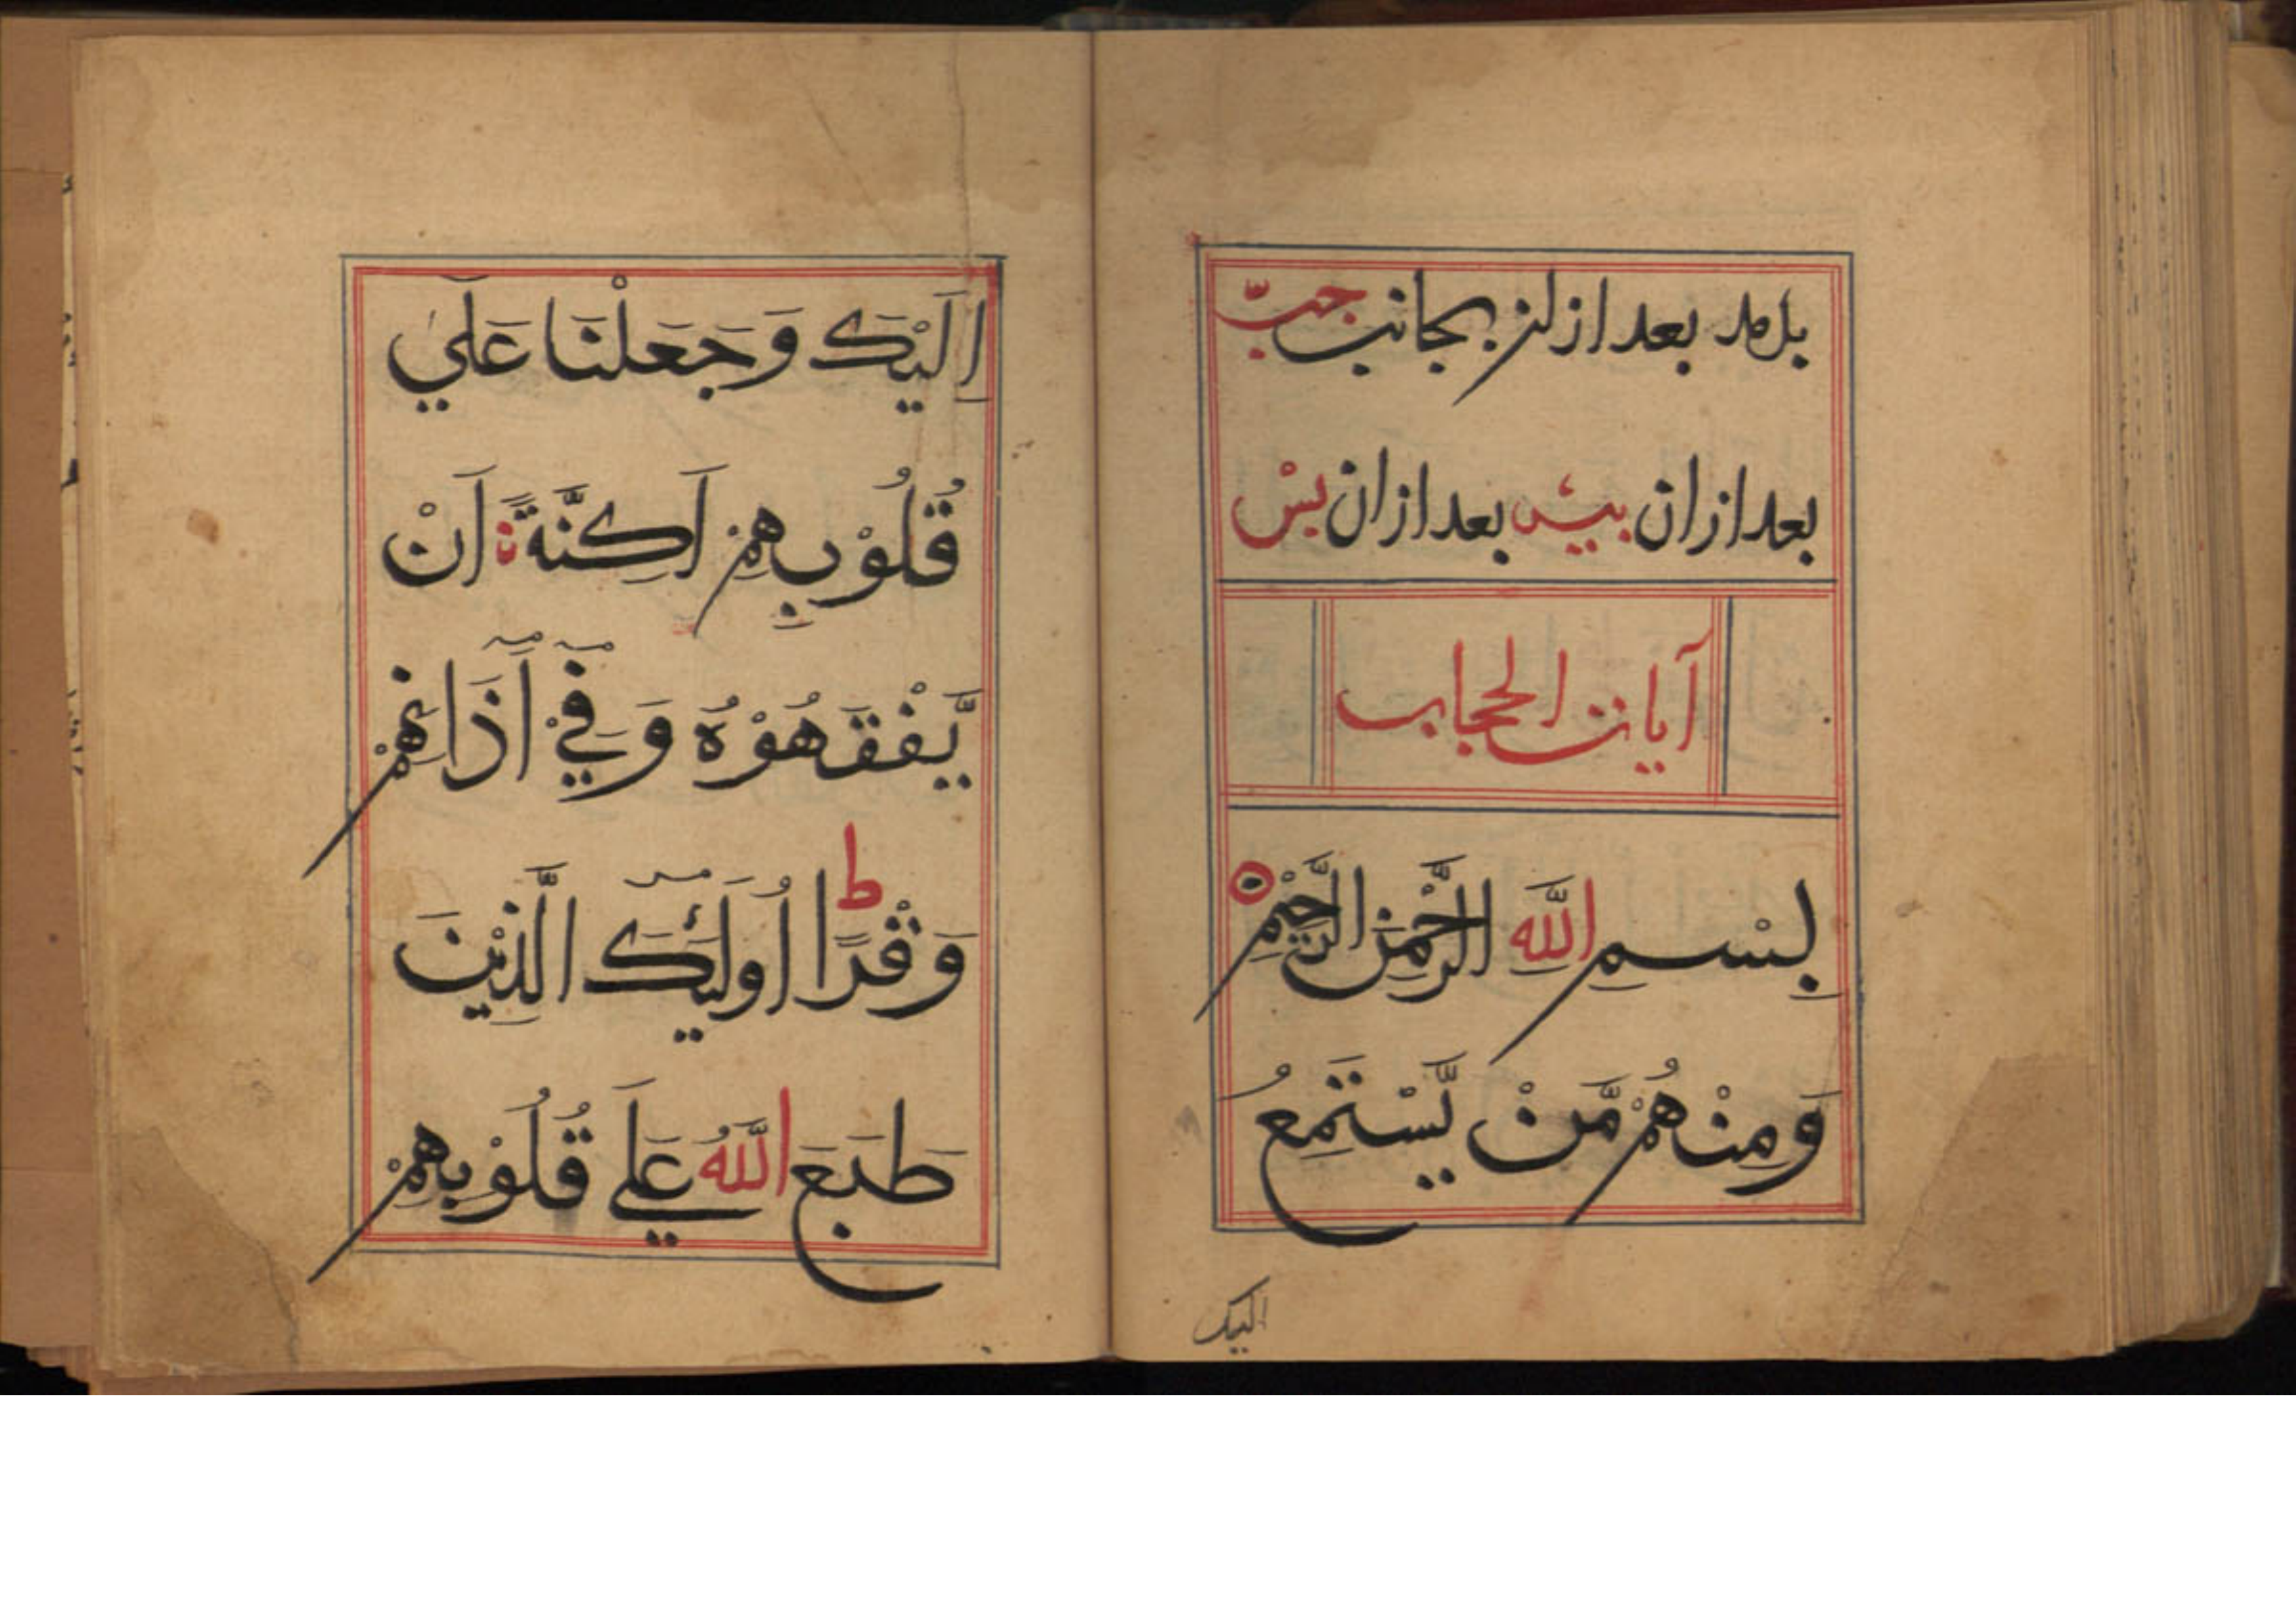 بدمد بعد از ان بجانب چپ
بعد از ان پیش بعد از ان پس
آيات الحجاب
بِسْمِ اللَّهِ الرَّحْمٰنِ الرَّحِيْمِ ۝
وَمِنْهُمْ مَّنْ يَّسْتَمِعُ
اليك
اِلَيْكَ وَجَعَلْنَا عَلٰي
قُلُوْبِهِمْ اَكِنَّةً اَنْ
يَّفْقَهُوْهُ وَفِيْٓ اٰذَانِهِمْ
وَقْرًا ط اُولٰٓئِكَ الَّذِيْنَ
طَبَعَ اللَّهُ عَلٰي قُلُوْبِهِمْ